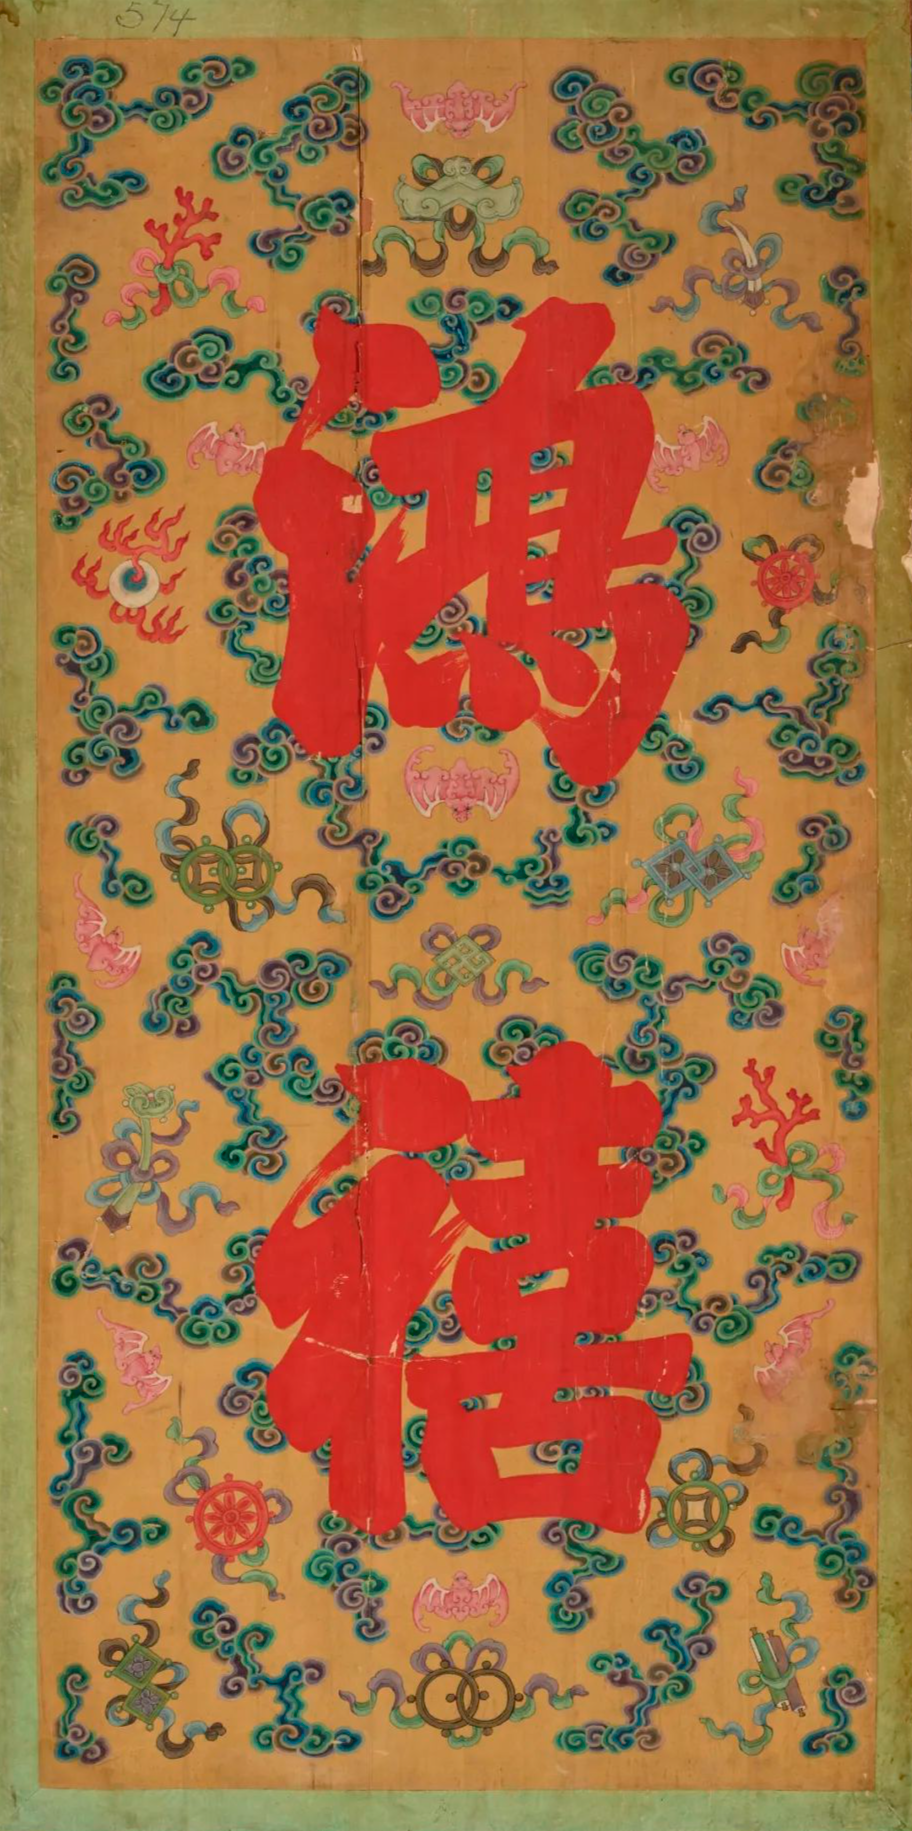 574
鴻
禧